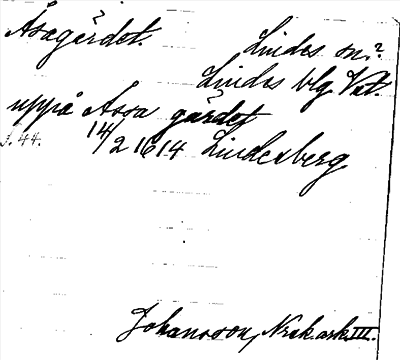 Åsagärdet. Lindes sn.?
Lindes blg. Vstm.
uppå Åssa gärdet
s. 44. 14/2 1614 Lindesberg
Johansson, Nrsk.ark. III.